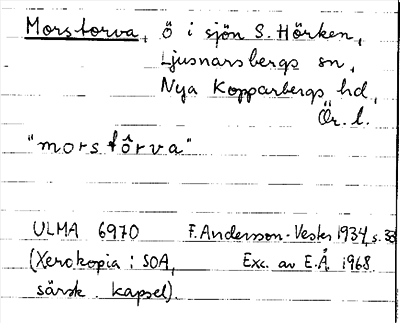 Morstorva, ö i sjön S. Hörken,
Ljusnarsbergs sn,
Nya Kopparbergs hd,
Ör. l.
"morstôrva"
ULMA 6970 F. Andersson-Vester 1934, s. 33
(Xerokopia i SOA, Exc. av E.Å. 1968
särsk. kapsel).